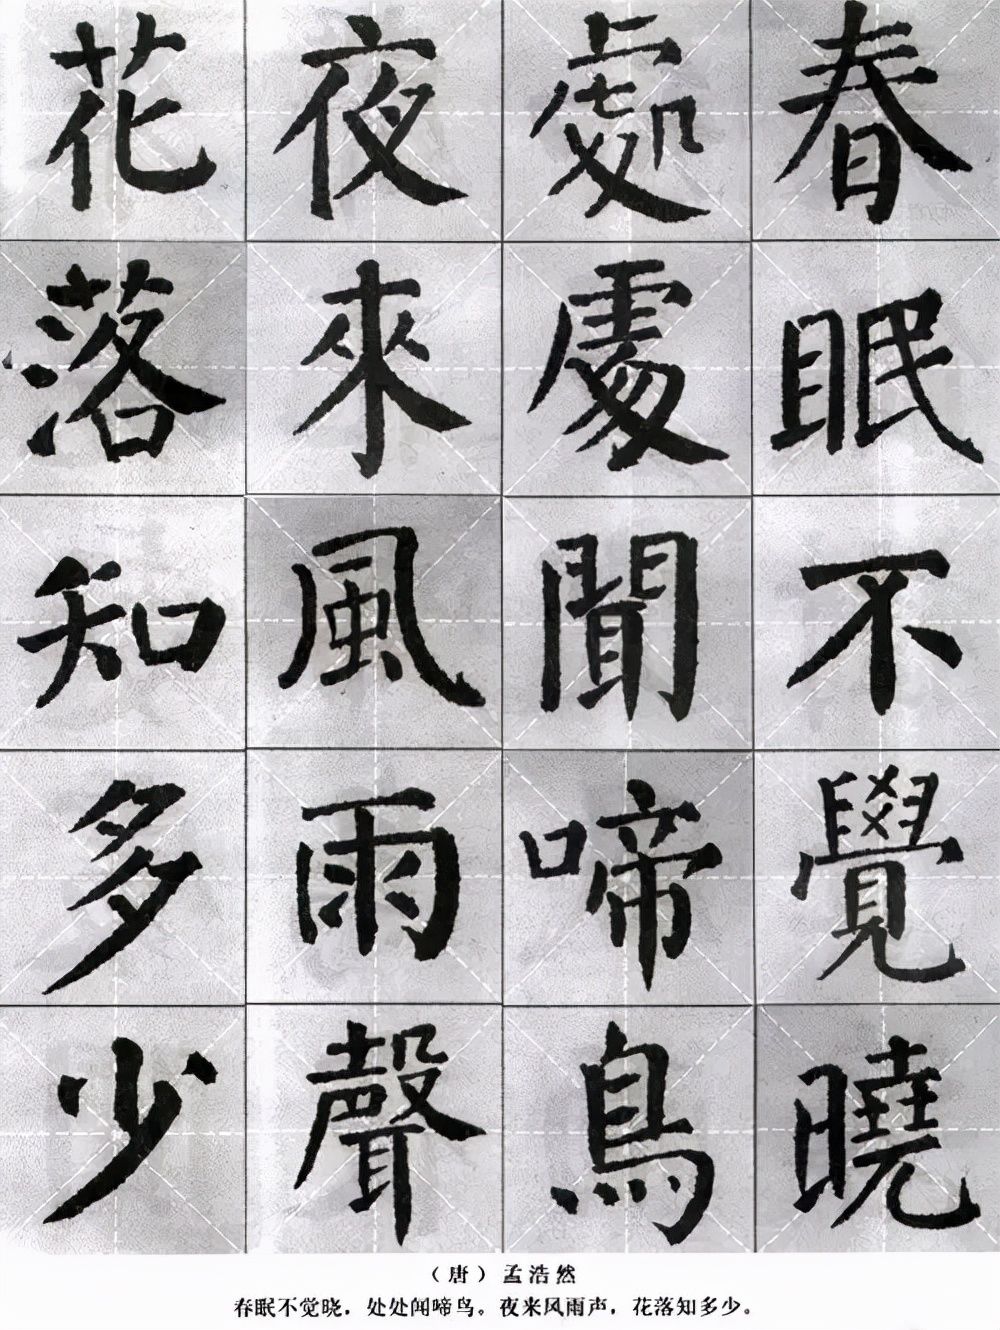 春眠不覺曉
處處聞啼鳥
夜來風雨聲
花落知多少
（唐）孟浩然
春眠不觉晓，处处闻啼鸟。夜来风雨声，花落知多少。